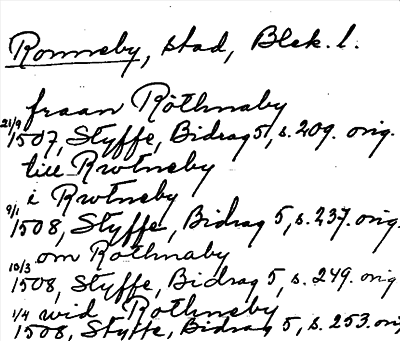 Ronneby, stad, Blek. l.
fraan Röthnaby
21/9 1507, Styffe, Bidrag 5, s. 209. orig.
till Rwtneby
i Rwtneby
9/1 1508, Styffe, Bidrag 5, s. 237. orig.
om Rothnaby
10/3 1508, Styffe, Bidrag 5, s. 249. orig
wid Rothneby
1/4 1508, Styffe, Bidrag 5, s. 253. orig